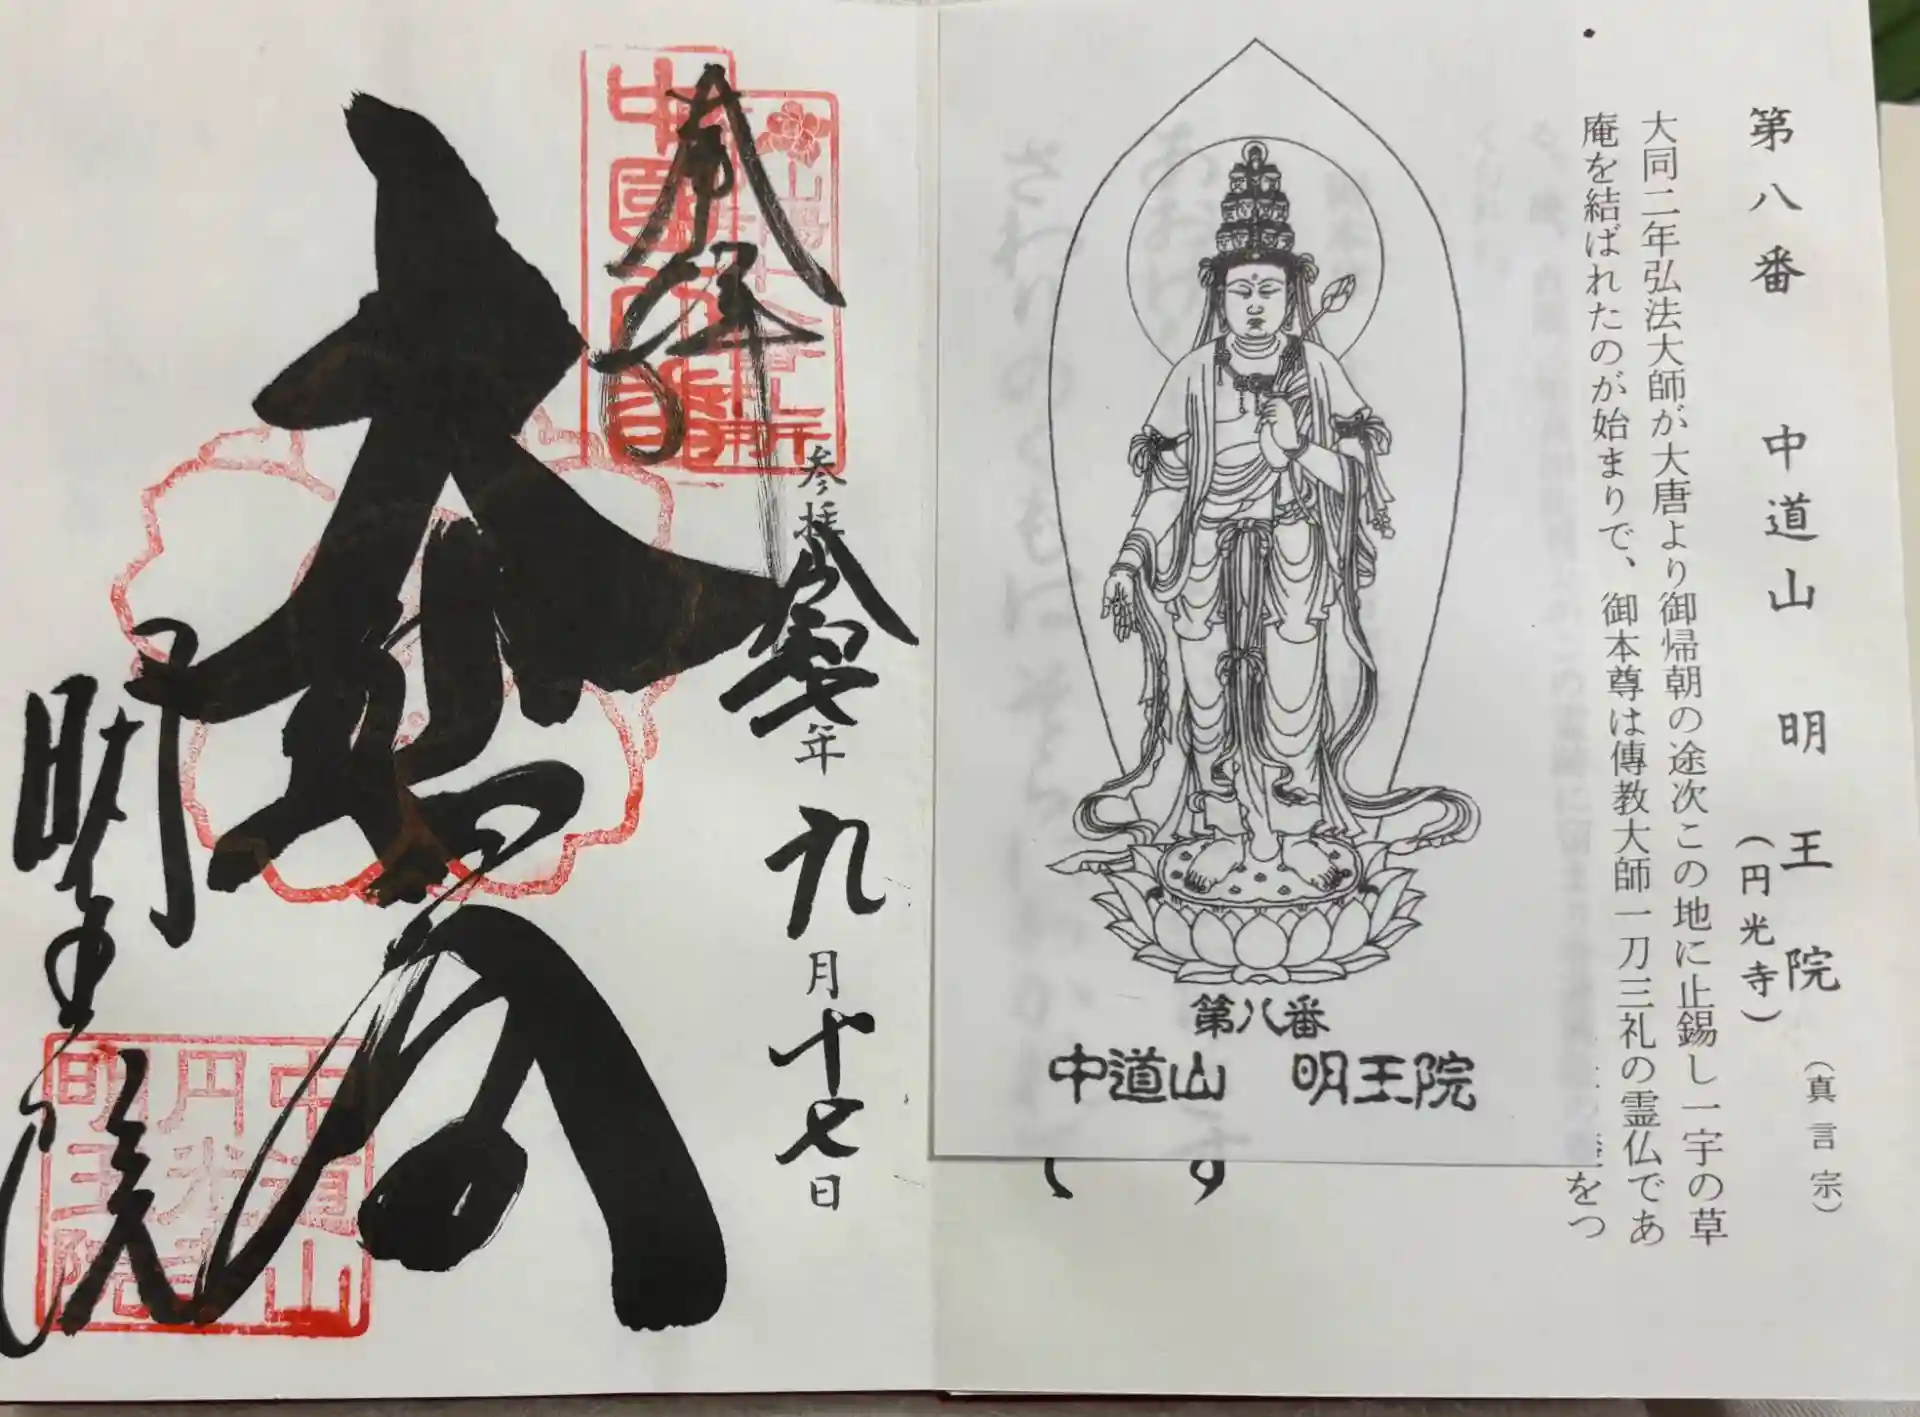 第八番　中道山　明王院
（円光寺）
（真言宗）
大同二年弘法大師が大唐より御帰朝の途次この地に止錫し一宇の草
庵を結ばれたのが始まりで、御本尊は傳教大師一刀三礼の霊仏であ
をつ
す
第八番
中道山　明王院
奉拝
参拝
令和七年九月十七日
大悲殿
明王院
中国
山陽
中道山
円光寺
明王院